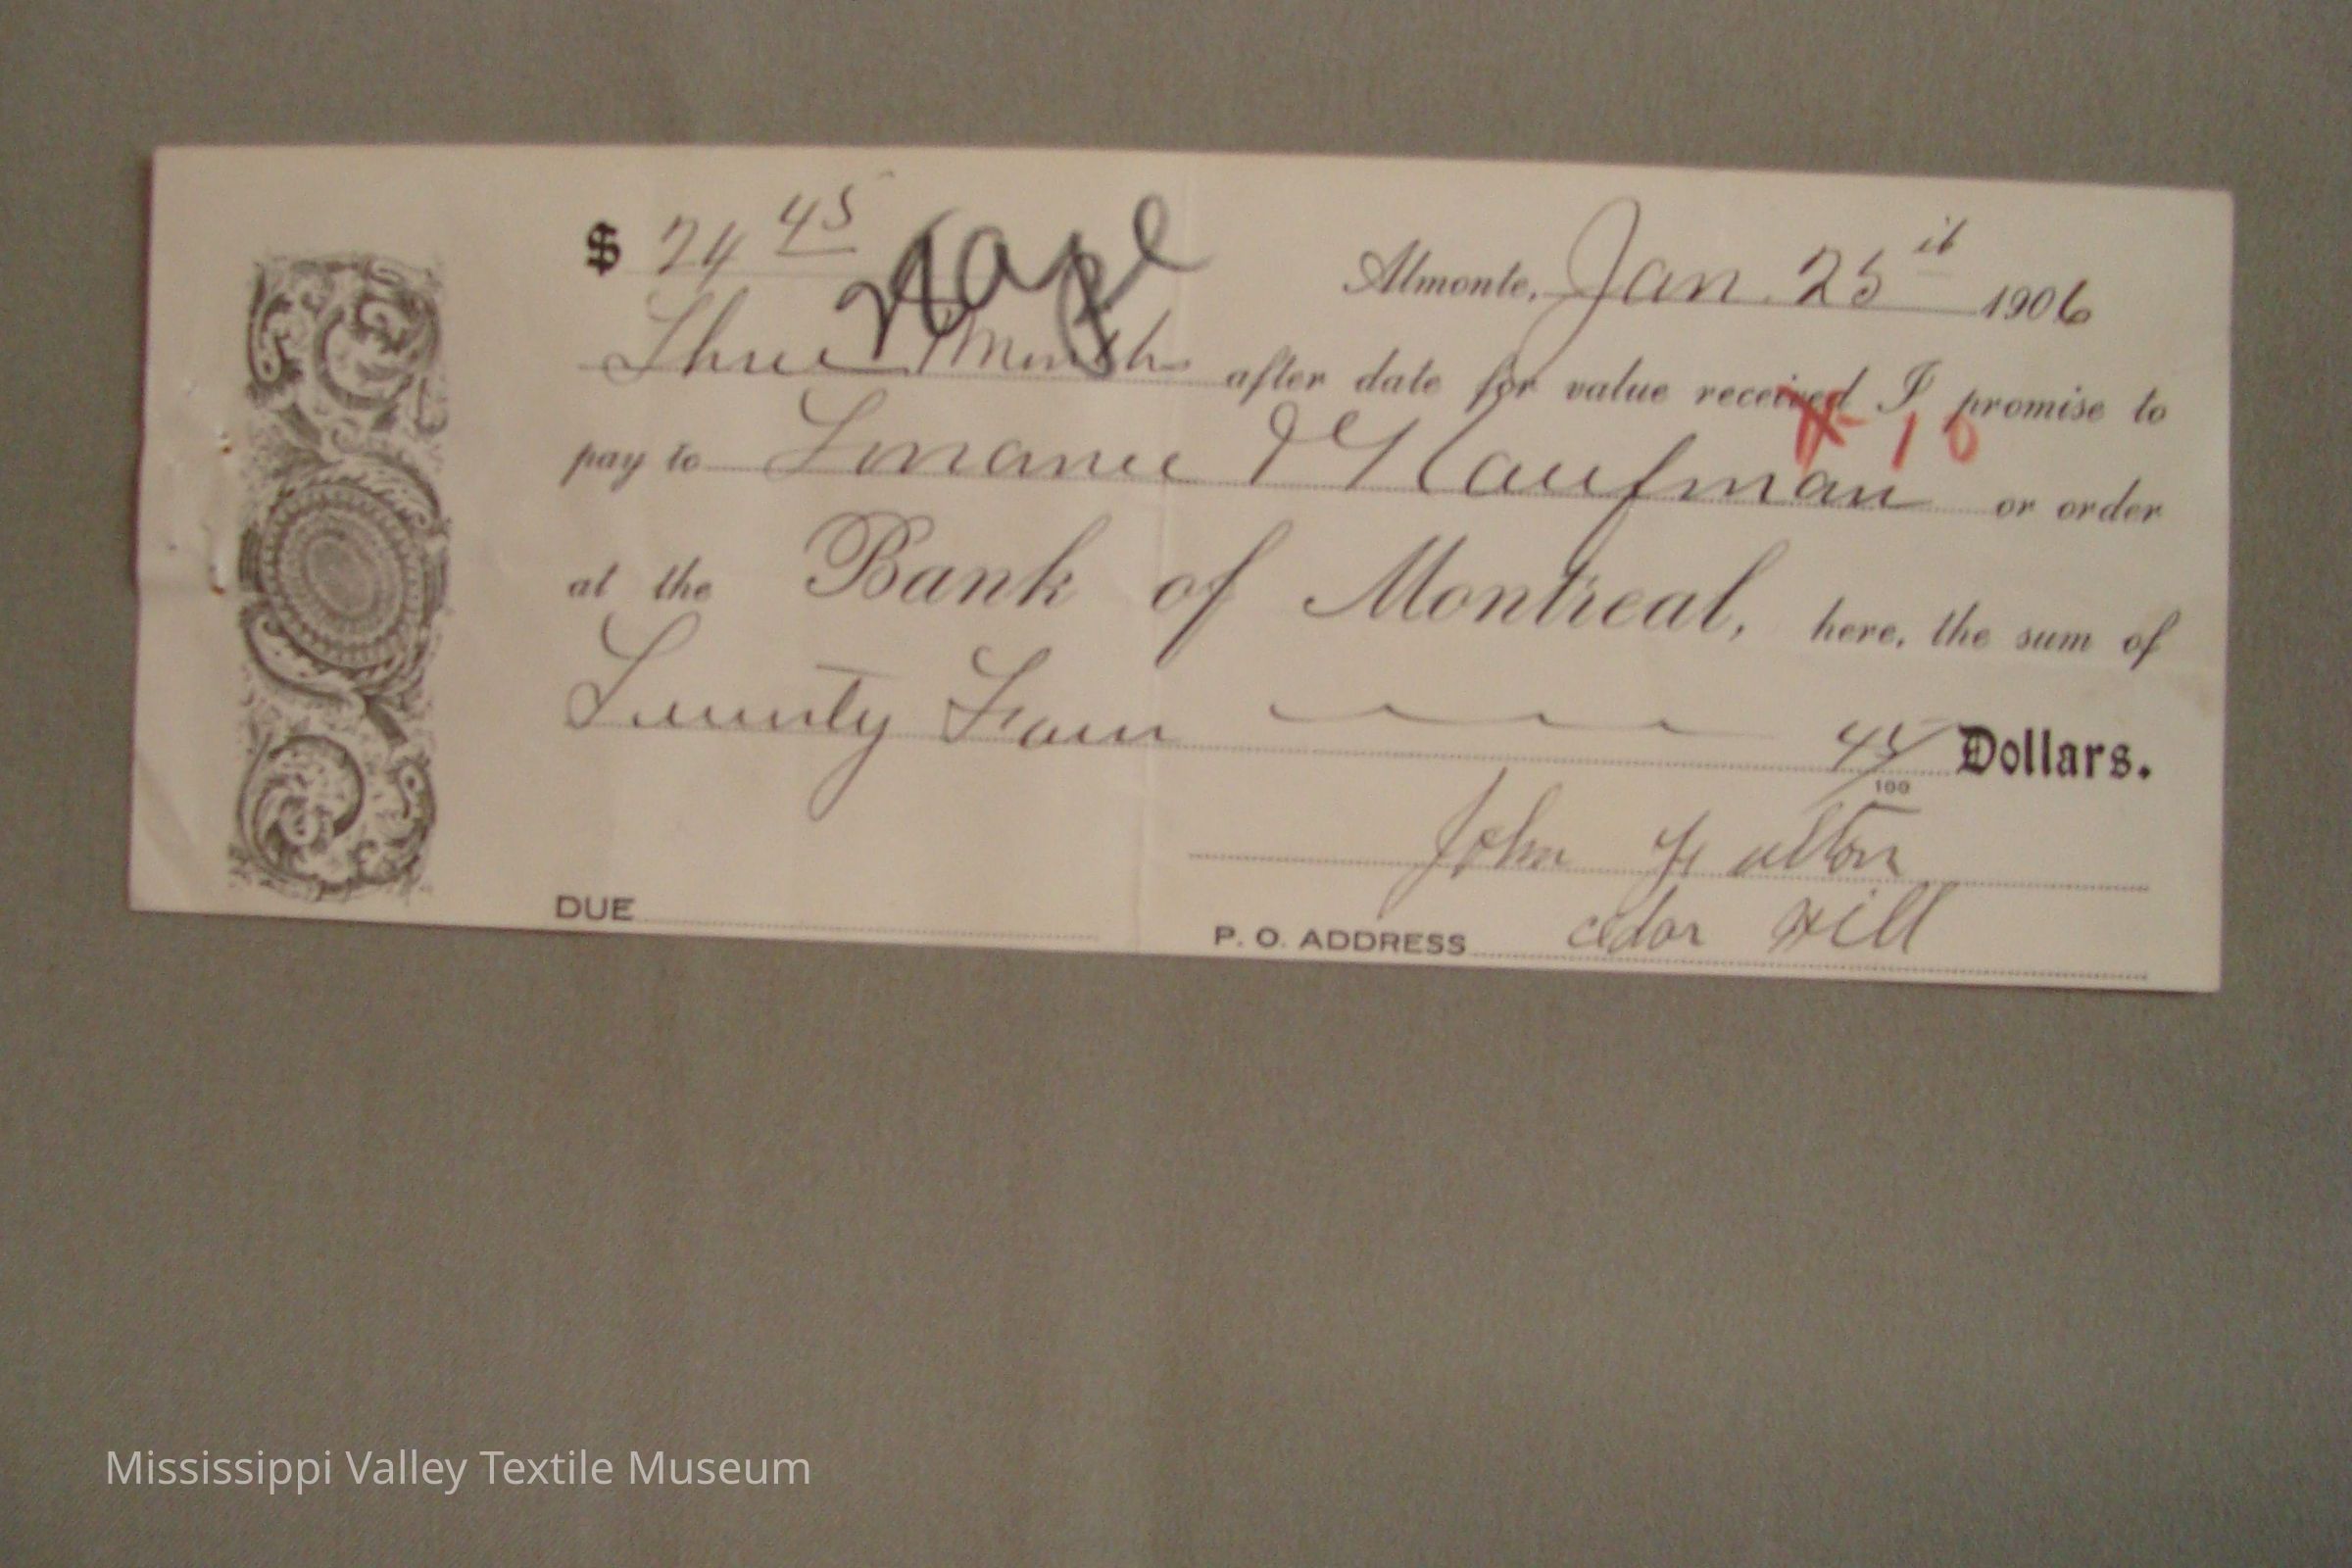 $ 24 45
Almonte, Jan. 25th 1906
Three Month after date for value received I promise to
pay to Kaufman or order
at the Bank of Montreal, here, the sum of
Twenty Four 45/100 Dollars.
John Fulton
DUE
P. O. ADDRESS Cedar Hill
Mississippi Valley Textile Museum